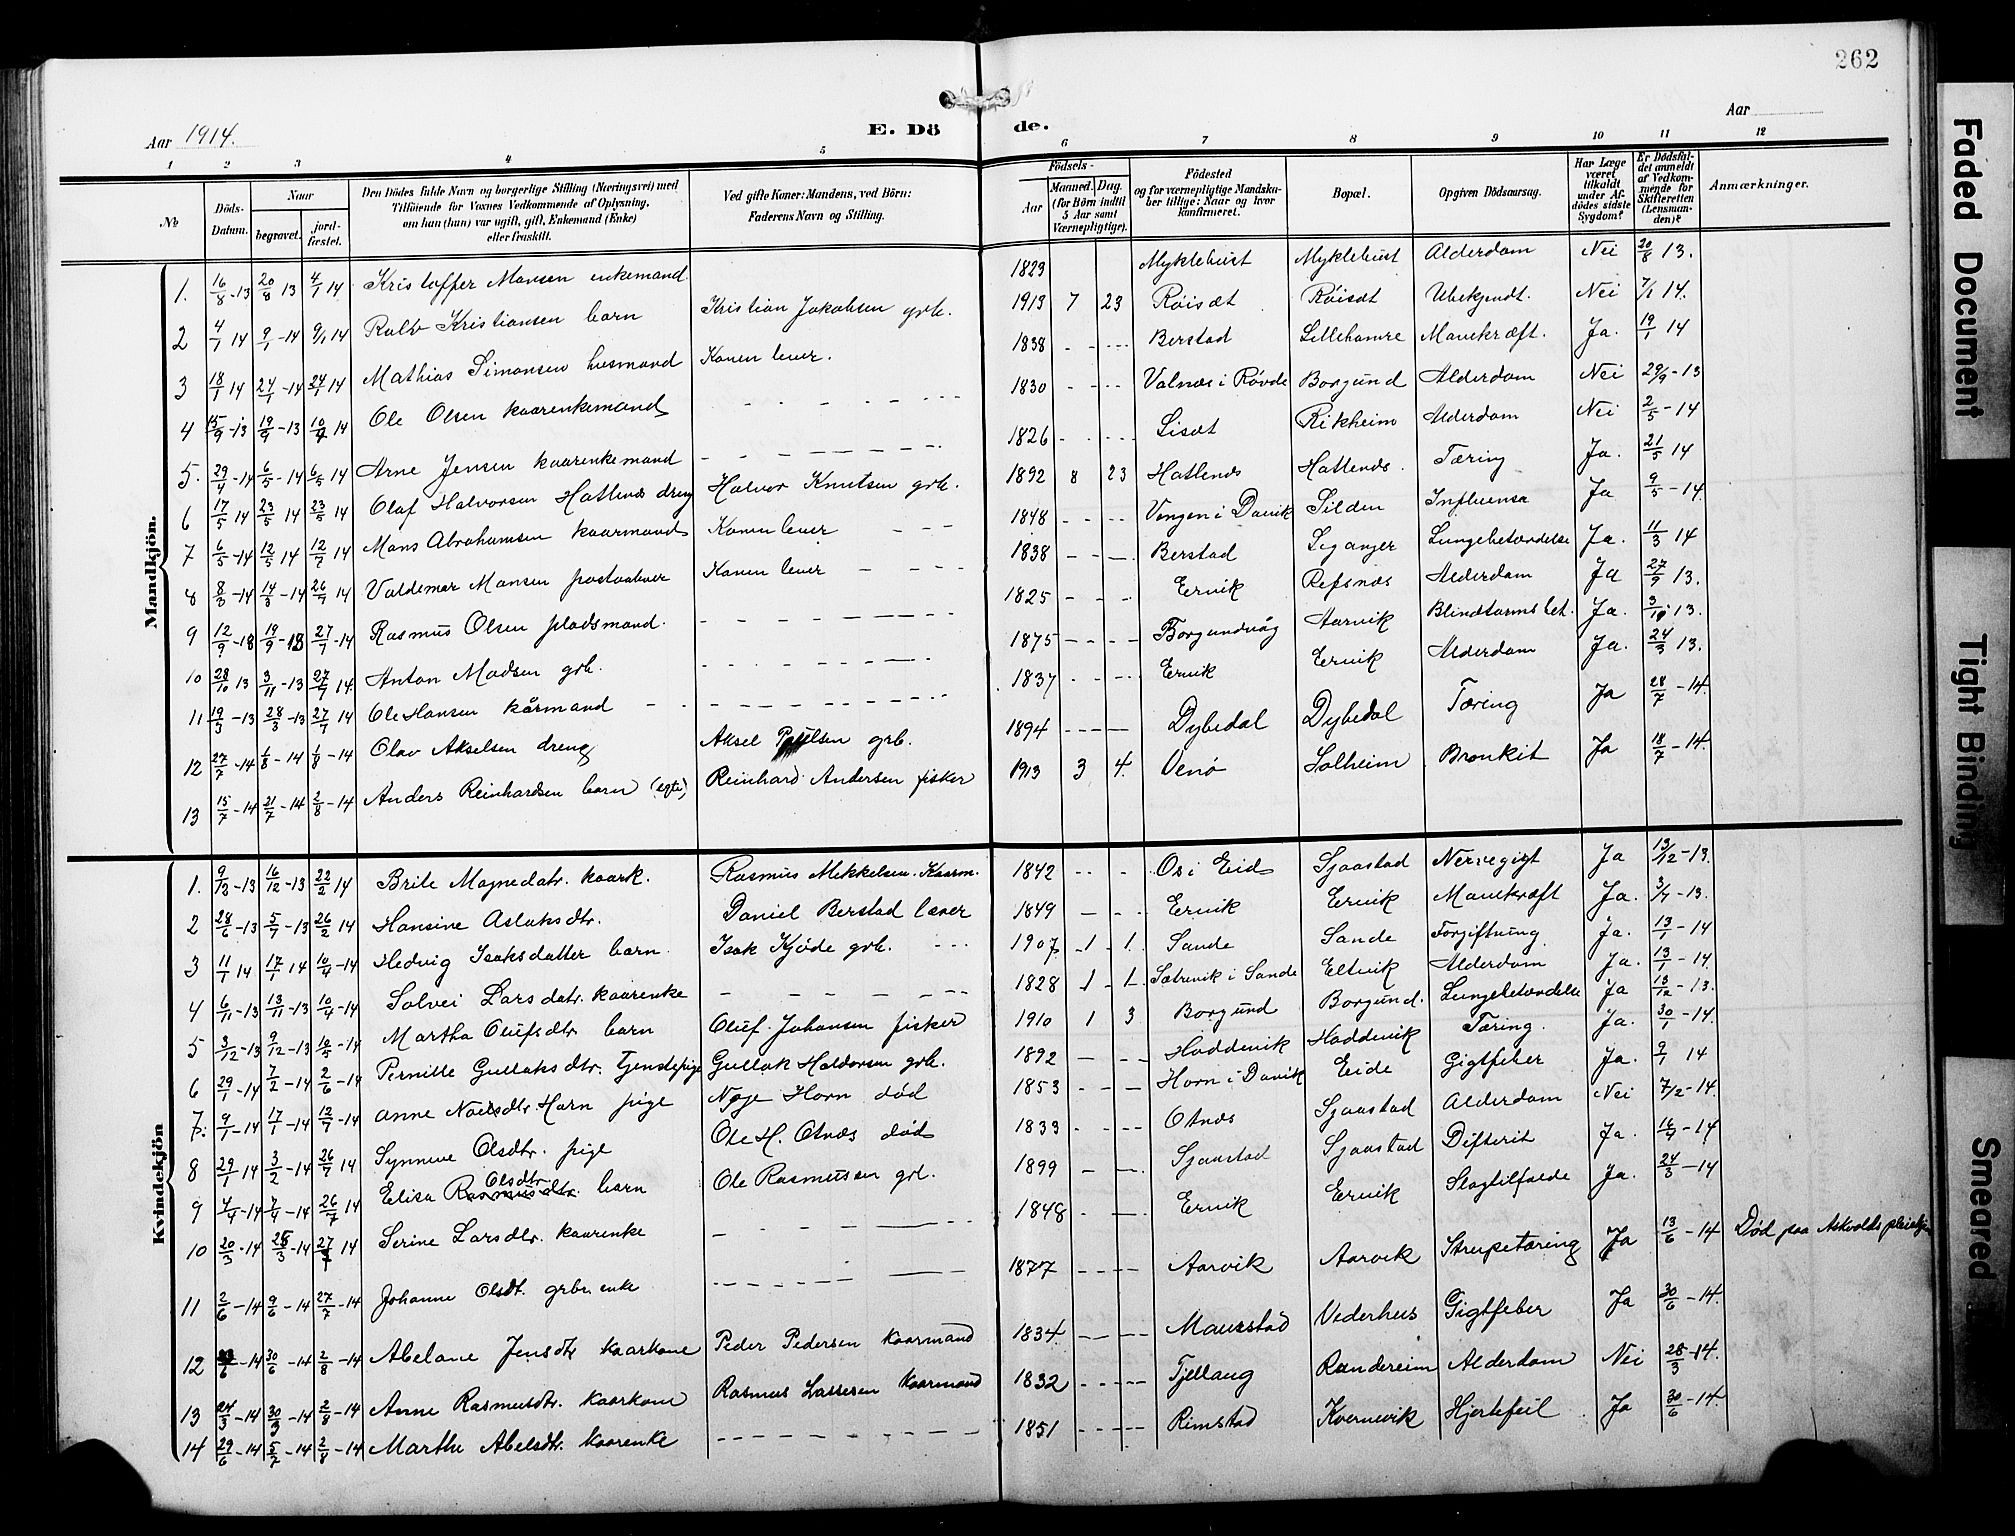 262
Aar 1914.
E. Döde.
Aar
1 2 3 4 5 6 7 8 9 10 11 12
№
Döds-Datum.
Naar
begravet.
jordfæstet.
Den Dödes fulde Navn og borgerlige Stilling (Næringsvei) med Tilföiende for Voxnes Vedkommende af Oplysning, om han (hun) var ugift, gift, Enkemand (Enke) eller fraskilt.
Ved gifte Koner: Mandens, ved Börn: Faderens Navn og Stilling.
Födsels-
Aar
Maaned. Dag. (for Börn indtil 5 Aar samt Værnepligtige).
Födested og for værnepligtige Mandskaber tillige: Naar og hvor konfirmeret.
Bopæl.
Opgiven Dödsaarsag.
Har Læge været tilkaldt under Afdödes sidste Sygdom?
Er Dödsfaldet anmeldt af Vedkommende for Skifteretten (Lensmanden)?
Anmærkninger.
Mandkjön.
1. 16/8-13 20/8 13 4/1 14 Kristoffer Monsen enkemand 1829 Myklebust Myklebust Alderdom Nei 20/8 13.
2 4/1 14 9/1-14 9/1 14 Ralv Kristiansen barn Kristian Jakobsen grb. 1913 7 23 Røisæt Røisæt Ubekjendt. Nei 7/1 14.
3 18/1 14 24/1-14 24/1 14 Mathias Simonsen husmand Konen lever. 1838 Berstad Lillehamre Mavekræft. Ja. 19/1 14
4 15/9-13 19/9-13 10/4 14 Ole Olsen kaarenkemand 1830 Valnæs i Røvde Borgund Alderdom Nei 29/9-13
5. 29/4-14 6/5-14 6/5 14 Arne Jensen kaarenkemand 1826 Lisæt Rikheim Alderdom Nei 2/5-14
6 17/5 14 23/5 14 23/5 14 Olaf Halvorsen Hatlenæs dreng Halvor Knutsen grb. 1892 8 23 Hatlenæs Hatlenæs. Tæring Ja. 21/5 14
7 6/5-14 12/5 14 12/7 14 Mons Abrahamsen kaarmand Konen lever 1848 Vengen i Davik Silden Influensa Ja 9/5-14.
8 8/3-14 14/3-14 26/7 14 Valdemar Monsen postaabner Konen lever 1838 Berstad Leganger Lungebetændelse Ja. 11/3 14
9 12/9-13 19/9-13 27/7-14 Rasmus Olsen pladsmand. 1825 Ervik Refsnæs Alderdom Ja 27/9 13.
10 28/10 13 3/11-13 27/7 14. Anton Madsen grb. 1875 Borgundvåg Aarvik Blindtarmsbet. Ja. 3/11 13.
11 19/3-13 28/3-13 27/7 14 Ole Hansen kårmand 1837 Ervik Ervik Alderdom Ja. 24/3 13.
12 27/7-14 1/8-14 1/8-14 Olav Akselsen dreng Aksel Paulsen grb. 1894 Dybedal Dybedal Tæring Ja 28/7-14.
13 15/7-14 21/7-14 2/8-14 Anders Reinhardsen barn (egte) Reinhard Andersen fisker 1913 3 4. Venø Solheim Bronkit Ja 18/7-14.
Kvindekjön
1. 9/12-13 16/12-13 22/2 14 Brite Magnedatr. kaark. Rasmus Mekkelsen. Kaarm. 1842 Os i Eid Sjaastad Nervegigt Ja 13/12-13.
2 28/6-13 5/7-13 26/2 14 Hansine Aslaksdtr. Daniel Berstad lærer 1849 Ervik Ervik Mavekræft Ja. 3/7-13.
3 11/1 14 17/1 14 10/4-14 Hedvig Isaksdatter barn Isak Kjøde grb. 1907 1 1. Sande Sande Forgiftning Ja. 13/1-14
4 6/11-13 13/11-13 10/4-14 Solvei Larsdatr. kaarenke 1828 1 1. Sætrevik i Sande Eltvik Alderdom Ja. 13/1-14.
5 3/12-13 9/12-13 10/5-14 Martha Olufsdtr barn Oluf Johansen fisker 1910 1 3 Borgund Borgund. Lungebetændelse Ja 13/12-13.
6 29/1-14 7/2-14 2/6-14 Pernille Gullaksdtr. Tjenstepige Gullak Haldorsen grb. 1892 Hoddevik Hoddevik Tæring. Ja. 30/1-14.
7. 9/1-14 17/1-14 12/7-14 Anne Noesdtr Horn pige Noe Horn død 1853 Horn i Davik Eide Gigtfeber Ja. 9/1 14
8 29/1 14 3/2-14 26/7 14 Synneve Olsdtr. pige Ole H. Otnæs død 1833 Otnæs Sjaastad Alderdom Nei 7/2-14.
9 4/4-14 7/4-14 26/7 14 Elisa Rasmusdtr. Olsdtr. barn Ole Rasmussen grl. 1899 Sjaastad Sjaastad Difterit Ja. 16/4-14
10 20/3-14 25/3-14 27/7 14 Serine Larsdtr. kaarenke 1848 Ervik Ervik Slagtilfælde Ja. 24/3-14
11 2/6-14 9/6-14 27/7-14 Johanne Olsdt. grbr. enke 1877 Aarvik Aarvik Strupetæring Ja 13/6-14 Død paa Askvolds pleiehjem
12 23/6-14 30/6-14 2/8-14 Abelone Jensdtr kaarkone Peder Pedersen kaarmand 1834 Maurstad Vederhus Gigtfeber Ja 30/6-14.
13 24/3-14 30/3-14 2/8-14 Anne Rasmusdtr. kaarkone Rasmus Lassesen kaarmand 1832 Tjellaug Randereim Alderdom Nei 28/3-14.
14 29/6-14 5/7-14 2/8-14 Marthe Abelsdtr. kaarenke 1851 Rimstad Kvernevik Hjertefeil Ja 30/6-14.
Faded Document
Tight Binding
Smeared